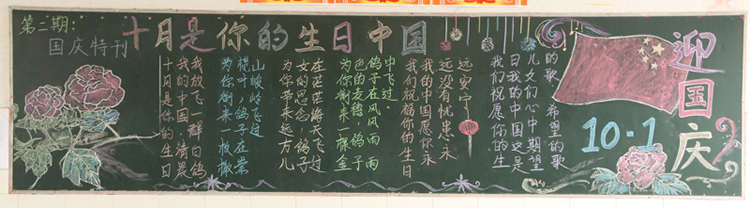 第二期:
国庆特刊
十月是你的生日中国
十月是你的生日
我的中国清晨
我放飞一群白鸽
为你衔来一枚橄
榄叶,鸽子在崇
山峻岭飞过
为你带来远方儿
女的思念,鸽子
在茫茫海天飞过
为你衔来一
金
色的
穗,鸽子
鸽子在风风雨雨
中飞过
我们祝愿你的生日
我的中国愿你永
远没有忧患永
远安宁
我们祝愿你的生
日我的中国这是
儿女们心中期望
的歌、希望的歌
迎国庆
10·1